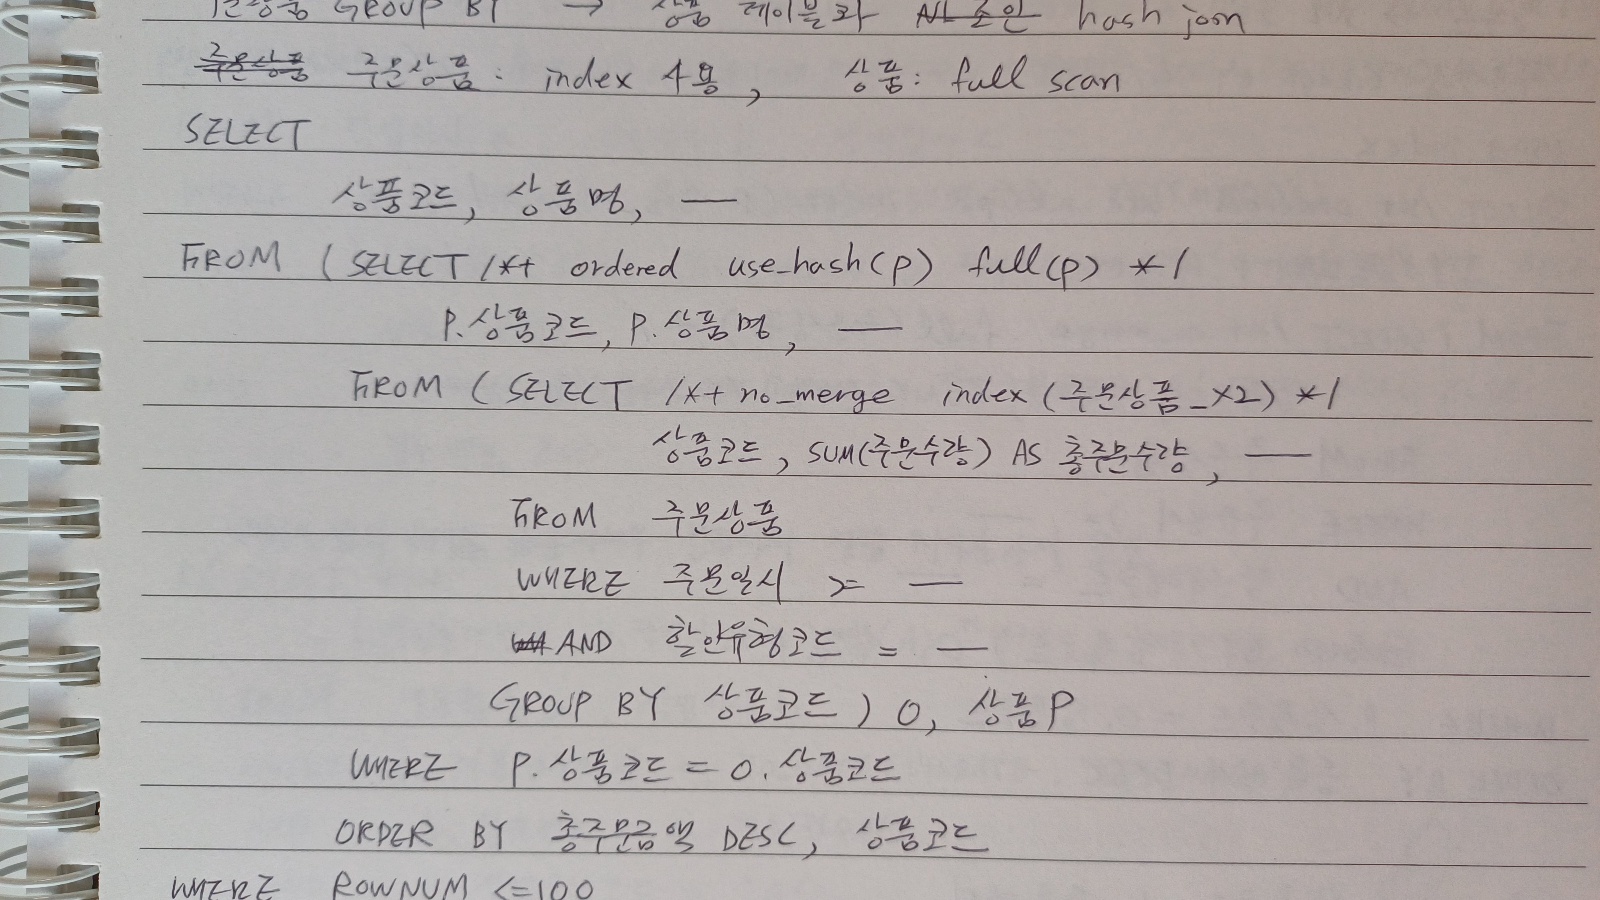 GROUP BY → 상품 테이블과 NL 조인 hash join
주문상품 주문상품 : index 사용, 상품 : full scan
SELECT
상품코드, 상품명, —
FROM (SELECT /*+ ordered use_hash(p) full(p) */
P.상품코드, P.상품명, —
FROM (SELECT /*+ no_merge index(주문상품_X2) */
상품코드, SUM(주문수량) AS 총주문수량, —
FROM 주문상품
WHERE 주문일시 >= —
AND 할인유형코드 = —
GROUP BY 상품코드) O, 상품 P
WHERE P.상품코드 = O.상품코드
ORDER BY 총주문금액 DESC, 상품코드
WHERE ROWNUM <=100